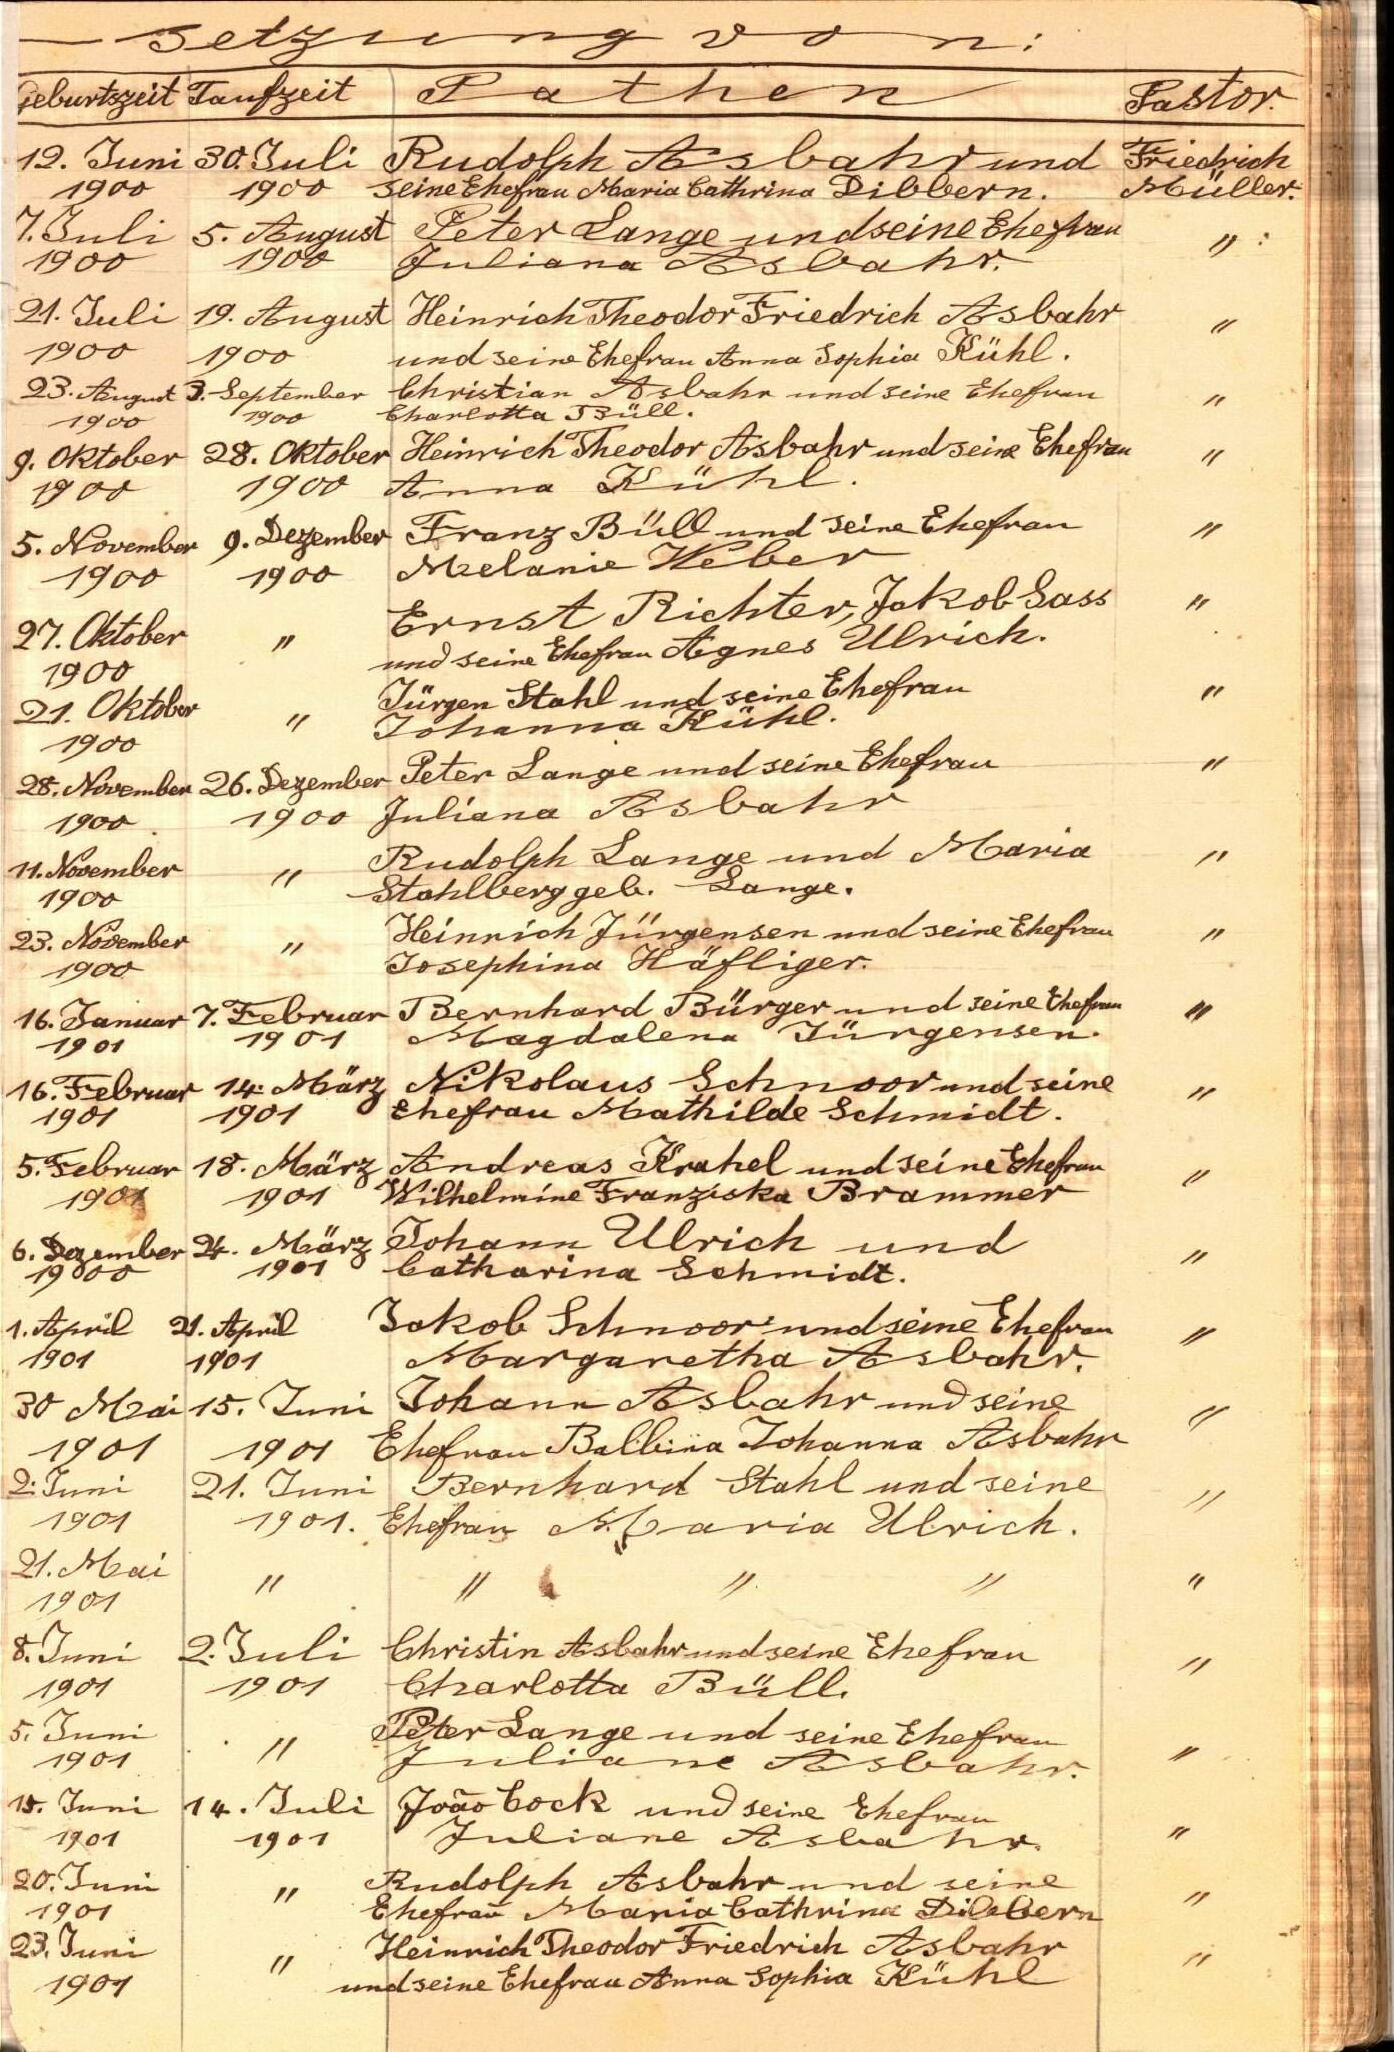 setzung von:
Geburtszeit Taufzeit Pathen Pastor.
12. Juni 30. Juli Rudolph Asbahr und Friedrich
1900 1900 seine Ehefrau Maria Cathrina Dibbern. Müller.
7. Juli 5. August Peter Lange und seine Ehefrau "
1900 1900 Juliana Asbahr.
21. Juli 19. August Heinrich Theodor Friedrich Asbahr "
1900 1900 und seine Ehefrau Anna Sophia Kühl.
23. August 3. September Christian Asbahr und seine Ehefrau "
1900 1900 Charlotta Büll.
9. Oktober 28. Oktober Heinrich Theodor Asbahr und seine Ehefrau "
1900 1900 Anna Kühl.
5. November 9. Dezember Franz Büll und seine Ehefrau "
1900 1900 Melanie Weber
27. Oktober " Ernst Richter, Jakob Sass "
1900 und seine Ehefrau Agnes Ulrich.
21. Oktober " Jürgen Stahl und seine Ehefrau "
1900 Johanna Kühl.
28. November 26. Dezember Peter Lange und seine Ehefrau "
1900 1900 Juliana Asbahr
11. November " Rudolph Lange und Maria "
1900 Stahlberg geb. Lange.
23. November " Heinrich Jürgensen und seine Ehefrau "
1900 Josephina Häfliger.
16. Januar 7. Februar Bernhard Bürger und seine Ehefrau "
1901 1901 Magdalena Jürgensen.
16. Februar 14. März Nikolaus Schnoor und seine "
1901 1901 Ehefrau Mathilde Schmidt.
5. Februar 18. März Andreas Krahel und seine Ehefrau "
1901 1901 Wilhelmine Franziska Brammer
6. Dezember 24. März Johann Ulrich und "
1900 1901 Catharina Schmidt.
1. April 21. April Jakob Schnoor und seine Ehefrau "
1901 1901 Margaretha Asbahr.
30 Mai 15. Juni Johann Asbahr und seine "
1901 1901 Ehefrau Balbina Johanna Asbahr
2. Juni 21. Juni Bernhard Stahl und seine "
1901 1901. Ehefrau Maria Ulrich.
21. Mai " " " " "
1901
8. Juni 2. Juli Christin Asbahr und seine Ehefrau "
1901 1901 Charlotta Büll.
5. Juni " Peter Lange und seine Ehefrau "
1901 Juliane Asbahr.
15. Juni 14. Juli João Cock und seine Ehefrau "
1901 1901 Juliane Asbahr.
20. Juni " Rudolph Asbahr und seine "
1901 Ehefrau Maria Cathrina Dibbern
23. Juni " Heinrich Theodor Friedrich Asbahr "
1901 und seine Ehefrau Anna Sophia Kühl